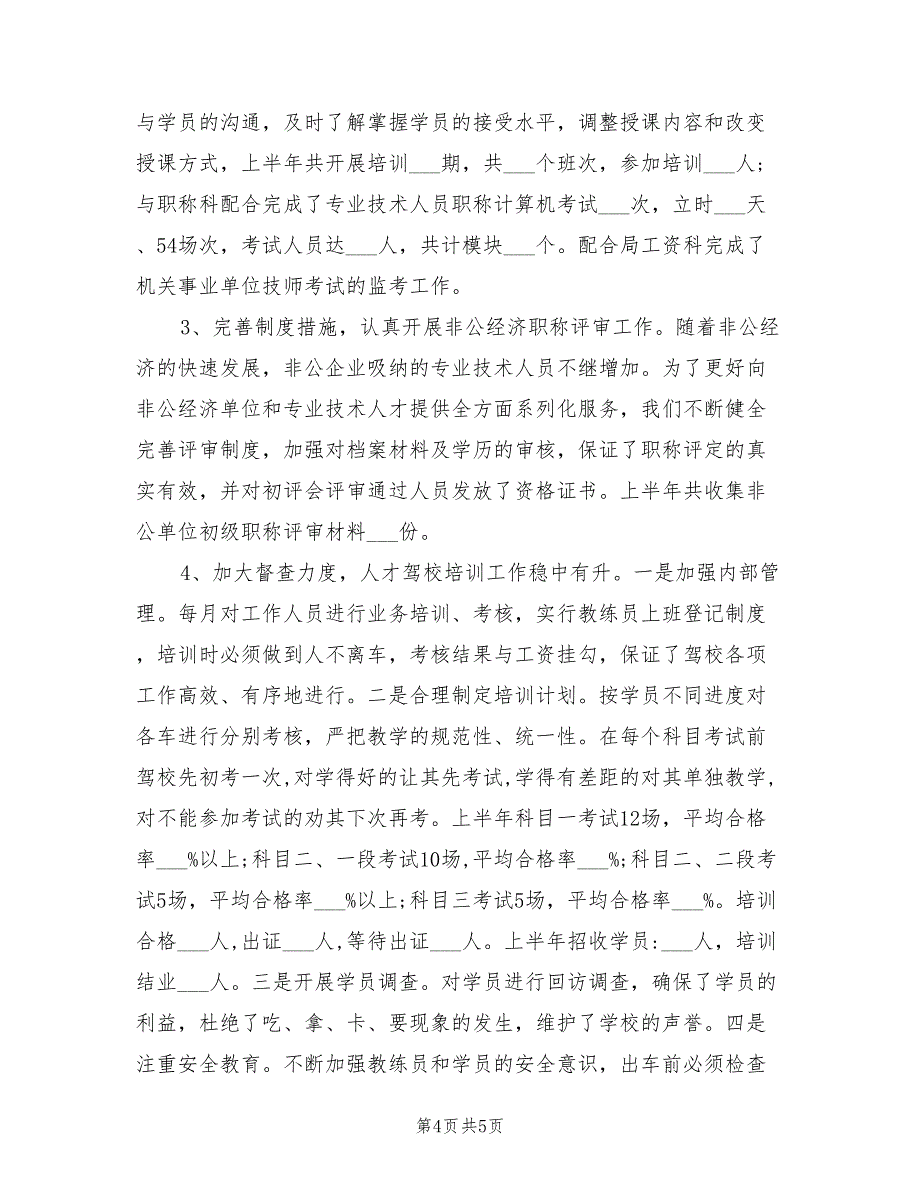 与学员的沟通，及时了解掌握学员的接受水平，调整授课内容和改变
授课方式，上半年共开展培训___期，共___个班次，参加培训___人;
与职称科配合完成了专业技术人员职称计算机考试___次，立时___天
、54场次，考试人员达___人，共计模块___个。配合局工资科完成了
机关事业单位技师考试的监考工作。
3、完善制度措施，认真开展非公经济职称评审工作。随着非公经
济的快速发展，非公企业吸纳的专业技术人员不继增加。为了更好向
非公经济单位和专业技术人才提供全方面系列化服务，我们不断健全
完善评审制度，加强对档案材料及学历的审核，保证了职称评定的真
实有效，并对初评会评审通过人员发放了资格证书。上半年共收集非
公单位初级职称评审材料___份。
4、加大督查力度，人才驾校培训工作稳中有升。一是加强内部管
理。每月对工作人员进行业务培训、考核，实行教练员上班登记制度
，培训时必须做到人不离车，考核结果与工资挂勾，保证了驾校各项
工作高效、有序地进行。二是合理制定培训计划。按学员不同进度对
各车进行分别考核，严把教学的规范性、统一性。在每个科目考试前
驾校先初考一次,对学得好的让其先考试,学得有差距的对其单独教学,
对不能参加考试的劝其下次再考。上半年科目一考试12场，平均合格
率___%以上;科目二、一段考试10场,平均合格率___%;科目二、二段考
试5场，平均合格率___%以上;科目三考试5场，平均合格率___%。培训
合格___人,出证___人,等待出证___人。上半年招收学员:___人，培训
结业___人。三是开展学员调查。对学员进行回访调查，确保了学员的
利益，杜绝了吃、拿、卡、要现象的发生，维护了学校的声誉。四是
注重安全教育。不断加强教练员和学员的安全意识，出车前必须检查
第4页共5页